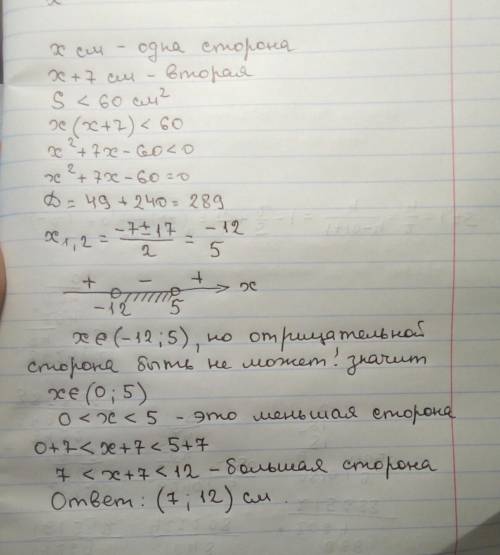 x см - одна сторона
x+7 см - вторая
S < 60 см²
x(x+7) < 60
x²+7x-60<0
x²+7x-60=0
D = 49+240=289
x₁,₂ = (-7±17)/2 = -12
5
+ - +
-12 5 x
xє(-12;5), но отрицательной
сторона быть не может! значит
xє(0;5)
0<x<5 - это меньшая сторона
0+7<x+7<5+7
7<x+7<12 - большая сторона
Ответ: (7;12) см.